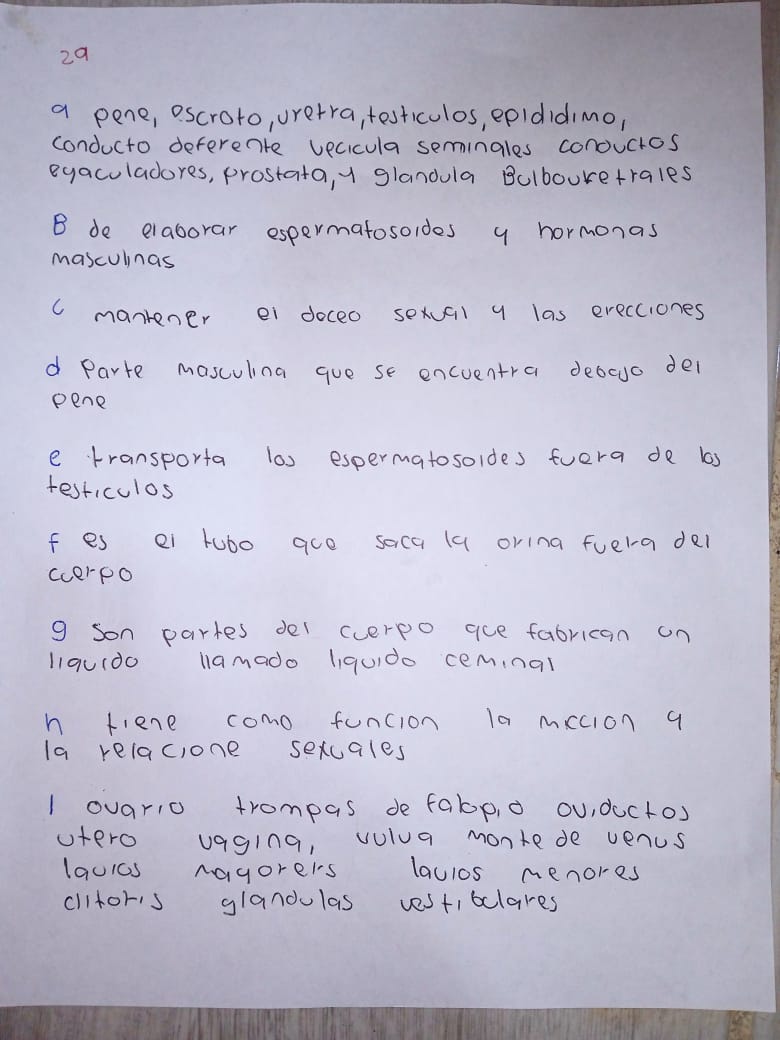 29
a pene, escroto, uretra, testiculos, epididimo,
conducto deferente vecicula seminales conductos
eyaculadores, prostata, y glandula Bulbouretrales
B de elaborar espermatosoides y hormonas
masculinas
c mantener el doceo sexual y las erecciones
d Parte masculina que se encuentra debajo del
pene
e transporta los espermatosoides fuera de los
testiculos
f es el tubo que saca la orina fuera del
cuerpo
g son partes del cuerpo que fabrican un
liquido llamado liquido ceminal
h tiene como funcion la miccion y
la relacione sexuales
I ovario trompas de falopio oviductos
utero vagina, vulva monte de venus
lavios mayorers lavios menores
clitoris glandulas vestibulares